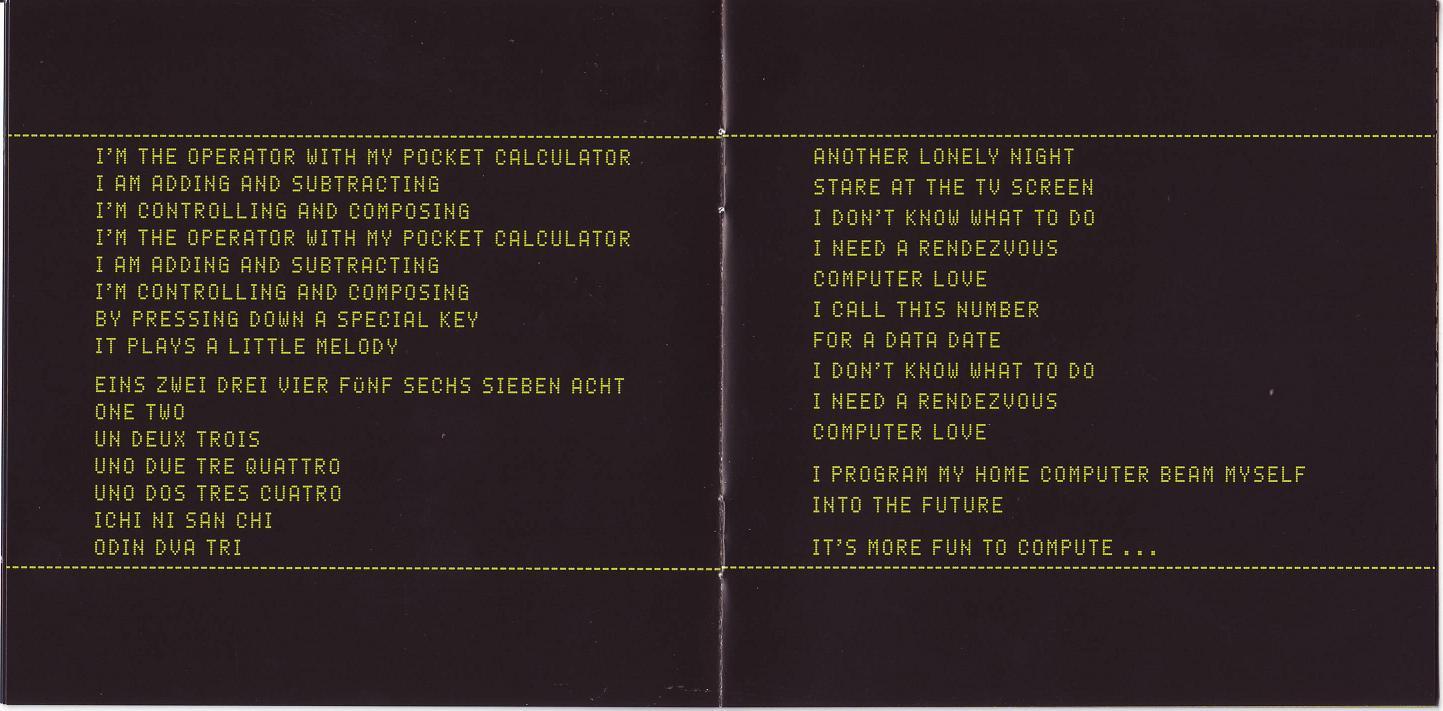 I'M THE OPERATOR WITH MY POCKET CALCULATOR
I AM ADDING AND SUBTRACTING
I'M CONTROLLING AND COMPOSING
I'M THE OPERATOR WITH MY POCKET CALCULATOR
I AM ADDING AND SUBTRACTING
I'M CONTROLLING AND COMPOSING
BY PRESSING DOWN A SPECIAL KEY
IT PLAYS A LITTLE MELODY
EINS ZWEI DREI VIER FÜNF SECHS SIEBEN ACHT
ONE TWO
UN DEUX TROIS
UNO DUE TRE QUATTRO
UNO DOS TRES CUATRO
ICHI NI SAN CHI
ODIN DVA TRI
ANOTHER LONELY NIGHT
STARE AT THE TV SCREEN
I DON'T KNOW WHAT TO DO
I NEED A RENDEZVOUS
COMPUTER LOVE
I CALL THIS NUMBER
FOR A DATA DATE
I DON'T KNOW WHAT TO DO
I NEED A RENDEZVOUS
COMPUTER LOVE
I PROGRAM MY HOME COMPUTER BEAM MYSELF
INTO THE FUTURE
IT'S MORE FUN TO COMPUTE ...